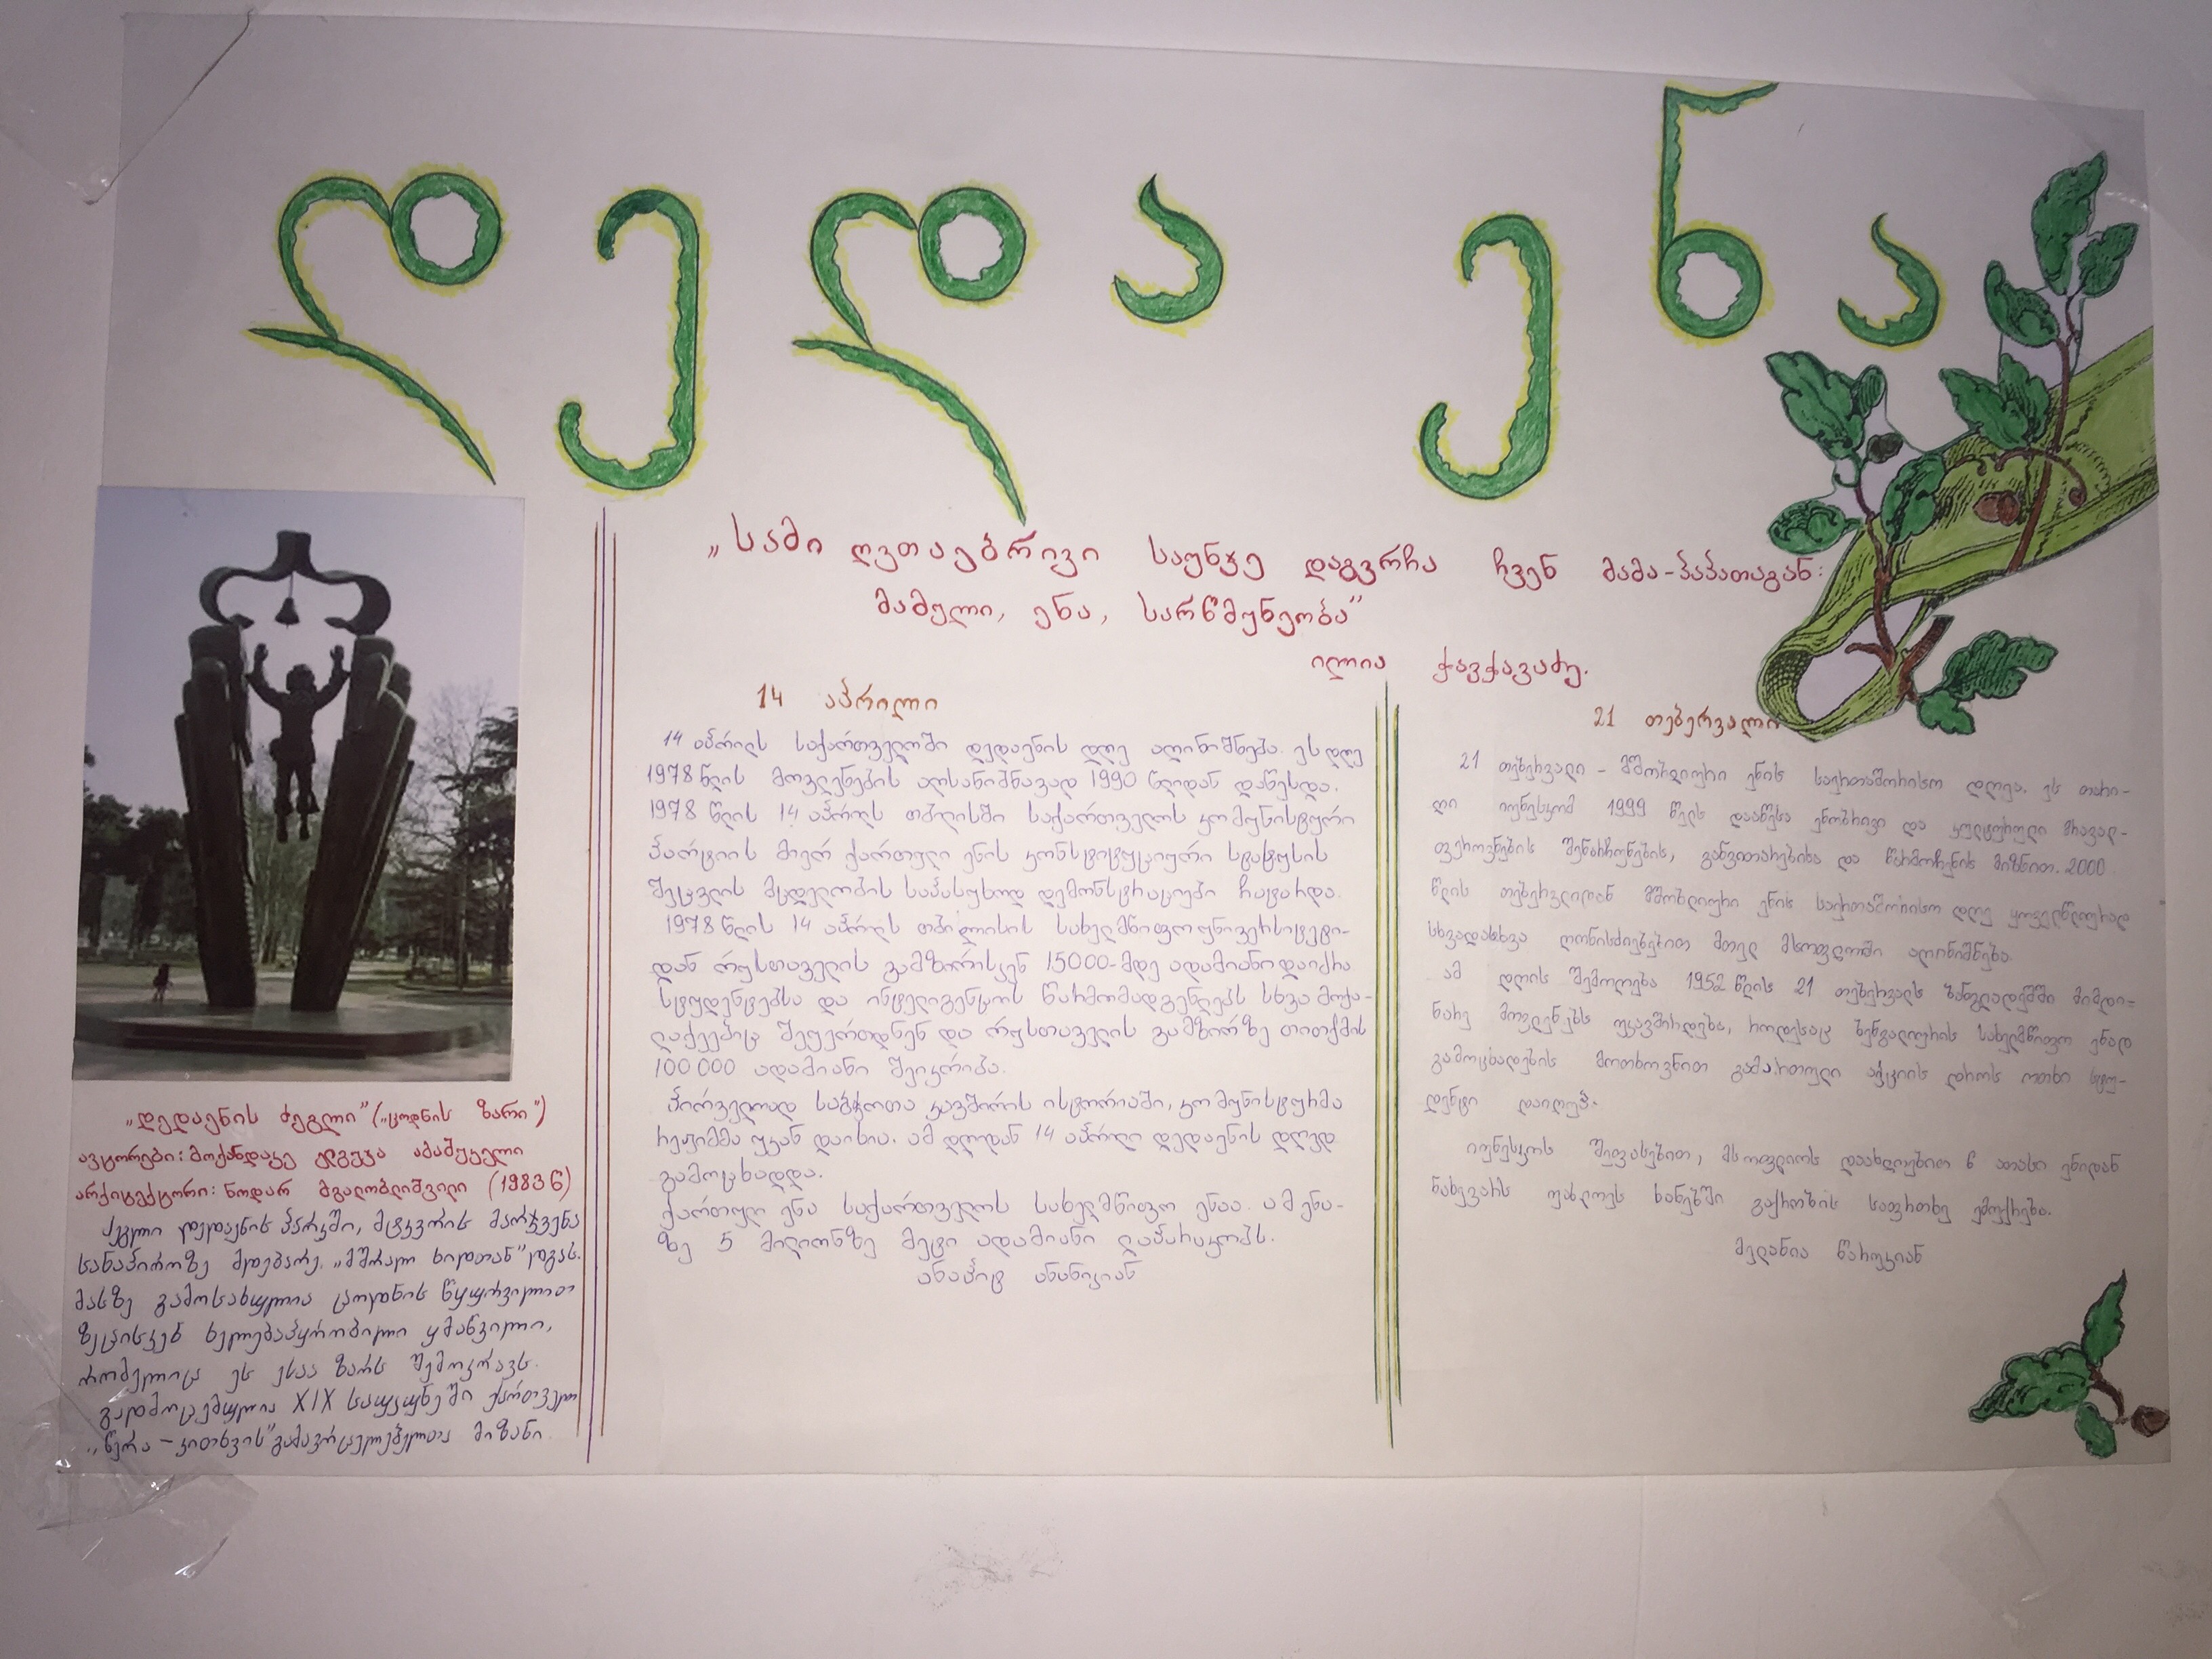 დედა ენა
„სამი ღვთაებრივი საუნჯე დაგვრჩა ჩვენ მამა-პაპათაგან:
მამული, ენა, სარწმუნეობა”
ილია ჭავჭავაძე.
„დედაენის ძეგლი” („ცოდნის ზარი”)
ავტორები: მოქანდაკე ელგუჯა ამაშუკელი
არქიტექტორი: ნოდარ მგალობლიშვილი (1983 წ)
ძეგლი დედაენის პარკში, მტკვრის მარჯვენა
სანაპიროზე მდებარე „მშრალ ხიდთან” დგას.
მასზე გამოსახულია ცოდნის წყურვილით
ზეცისკენ ხელებაპყრობილი ყმაწვილი,
რომელიც ეს ესაა ზარს შემოკრავს.
გადმოცემულია XIX საუკუნეში ქართველთა
„წერა-კითხვის” გამავრცელებელთა მიზანი
14 აპრილი
14 აპრილს საქართველოში დედაენის დღე აღინიშნება. ეს დღე
1978 წლის მოვლენების აღსანიშნავად 1990 წლიდან დაწესდა.
1978 წლის 14 აპრილს თბილისში საქართველოს კომუნისტური
პარტიის მიერ ქართული ენის კონსტიტუციური სტატუსის
შეცვლის მცდელობის საპასუხოდ დემონსტრაციები ჩატარდა.
1978 წლის 14 აპრილს თბილისის სახელმწიფო უნივერსიტეტი-
დან რუსთაველის გამზირისკენ 15000-მდე ადამიანი დაიძრა
სტუდენტებსა და ინტელიგენციის წარმომადგენლებს სხვა მოქა-
ლაქეებიც შეუერთდნენ და რუსთაველის გამზირზე თითქმის
100 000 ადამიანი შეიკრიბა.
პირველად საბჭოთა კავშირის ისტორიაში, კომუნისტურმა
რეჟიმმა უკან დაიხია. ამ დღიდან 14 აპრილი დედაენის დღედ
გამოცხადდა.
ქართული ენა საქართველოს სახელმწიფო ენაა. ამ ენა-
ზე 5 მილიონზე მეტი ადამიანი ლაპარაკობს.
ანაჰიტ ანანიკიან
21 თებერვალი
21 თებერვალი - მშობლიური ენის საერთაშორისო დღეა. ეს თარი-
ღი იუნესკომ 1999 წელს დააწესა ენობრივი და კულტურული მრავალ-
ფეროვნების შენარჩუნების, განვითარებისა და წარმოჩენის მიზნით. 2000
წლის თებერვლიდან მშობლიური ენის საერთაშორისო დღე ყოველწლიურად
სხვადასხვა ღონისძიებებით მთელ მსოფლიოში აღინიშნება.
ამ დღის შემოღება 1952 წლის 21 თებერვალს ბანგლადეშში მიმდი-
ნარე მოვლენებს უკავშირდება, როდესაც ბენგალიურის სახელმწიფო ენად
გამოცხადების მოთხოვნით გამართული აქციის დროს ოთხი სტუ-
დენტი დაიღუპა.
იუნესკოს შეფასებით, მსოფლიოს დაახლოებით 6 ათასი ენიდან
ნახევარს უახლოეს ხანებში გაქრობის საფრთხე ემუქრება.
მელანია წარუკიან